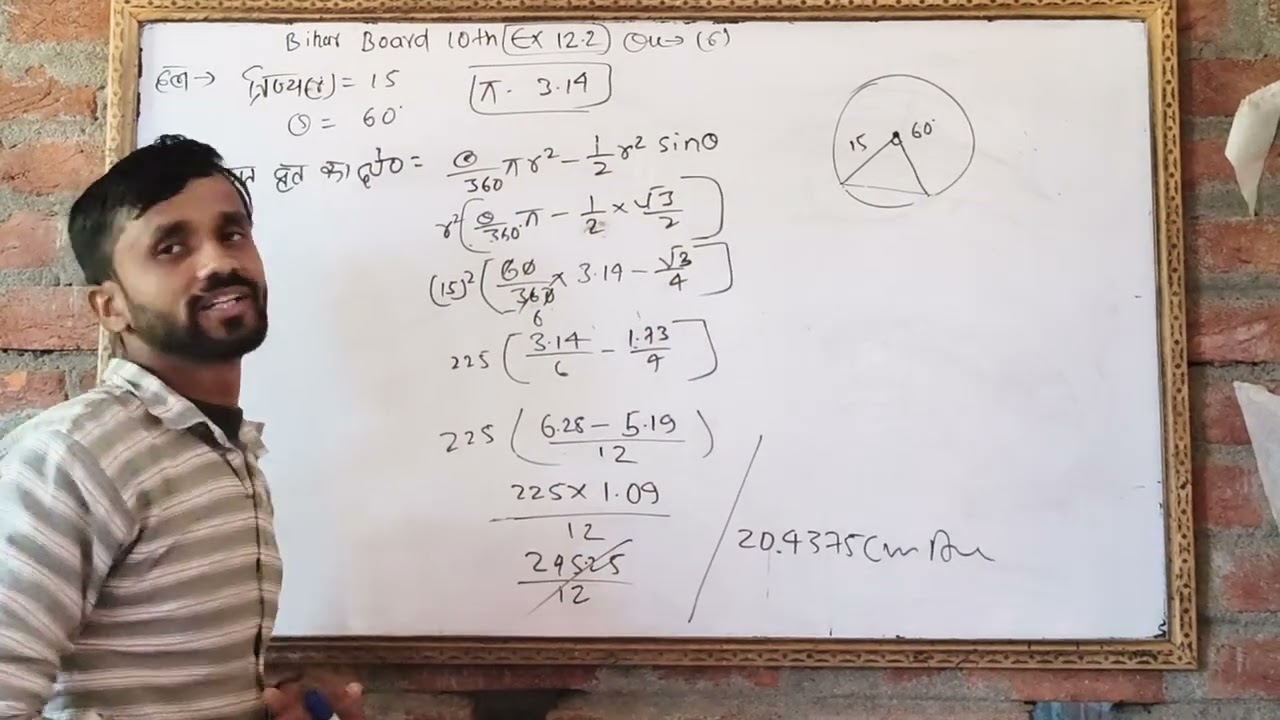 Bihar Board 10th (Ex 12.2) Qu→ (6)
हल→ त्रिज्या(r) = 15
π. 3.14
θ = 60°
वृत का = θ/360 πr² – 1/2 r² sinθ
r² [θ/360° π – 1/2 × √3/2]
(15)² [60/360 × 3.14 – √3/4]
6
225 [3.14/6 – 1.73/4]
225 (6.28 – 5.19/12)
225 × 1.09/12
245.25/12
20.4375 Cm Au
15
60°